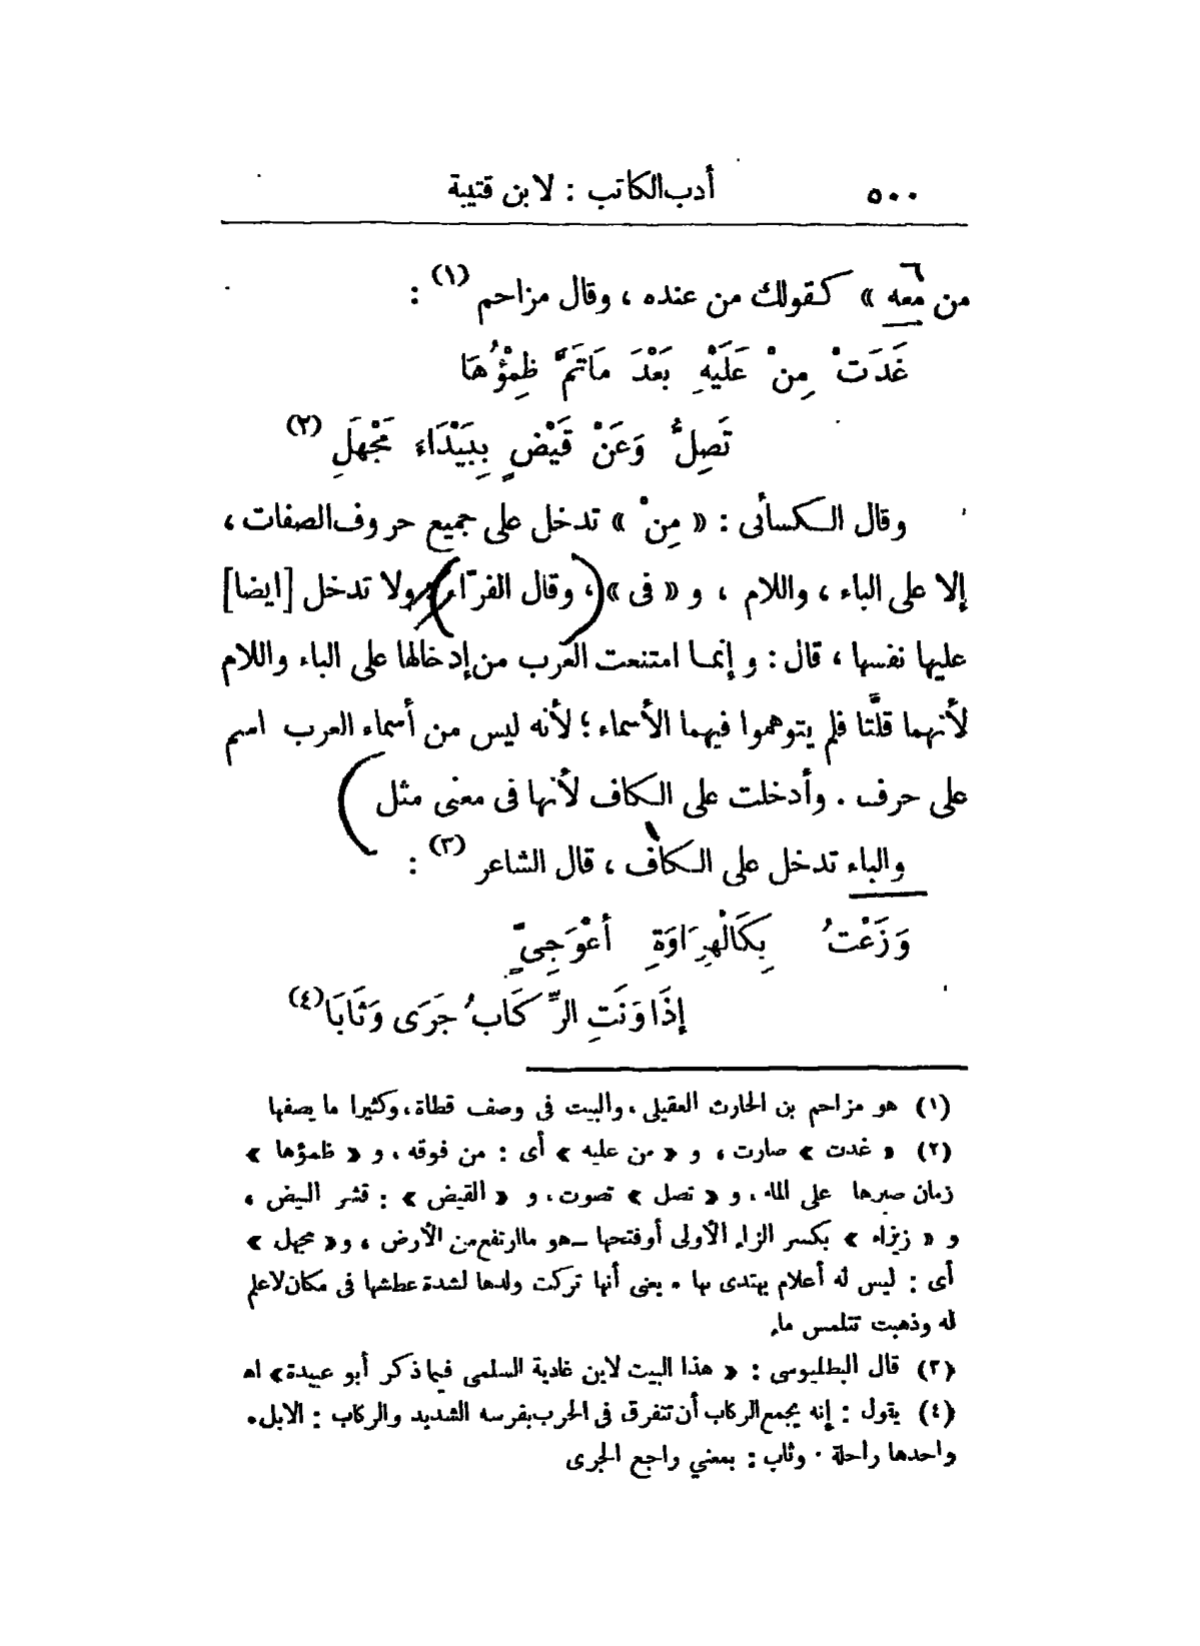 ٥٠٠ أدب الكاتب : لابن قتيبة
من معه » كقولك من عنده ، وقال مزاحم (١) :
غَدَتْ مِنْ عَلَيْهِ بَعْدَ مَا تَمَّ ظِمْؤُهَا
تَصِلُّ وَعَنْ قَيْضٍ بِبَيْدَاءَ مَجْهَلِ (٢)
وقال الكسائى : « مِنْ » تدخل على جميع حروف الصفات ،
إلا على الباء ، واللام ، و « فى » ، وقال الفرّاء : ولا تدخل [ايضا]
عليها نفسها ، قال : وإنما امتنعت العرب من إدخالها على الباء واللام
لأنهما قلَّتا فلم يتوهموا فيهما الأسماء ؛ لأنه ليس من أسماء العرب اسم
على حرف . وأدخلت على الكاف لأنها فى معنى مثل
والباء تدخل على الكاف ، قال الشاعر (٣) :
وَزَعْتُ بِكَالْهِرَاوَةِ أعْوَجِىٍّ
إذَا وَنَتِ الرِّكَابُ جَرَى وَثَابَا (٤)
(١) هو مزاحم بن الحارث العقيلى ، والبيت فى وصف قطاة ، وكثيرا ما يصفها
(٢) « غدت » صارت ، و « من عليه » أى : من فوقه ، و « ظمؤها »
زمان صبرها على الماء ، و « تصل » تصوت ، و « القيض » : قشر البيض ،
و « زيزاء » بكسر الزاء الأولى أو فتحها – هو ما ارتفع من الأرض ، و « مجهل »
أى : ليس له أعلام يهتدى بها . يعنى أنها تركت ولدها لشدة عطشها فى مكان لا علم
له وذهبت تتلمس ماء
(٣) قال البطليوسى : « هذا البيت لابن غادية السلمى فيما ذكر أبو عبيدة » اه
(٤) يقول : إنه يجمع الركاب أن تتفرق فى الحرب بفرسه الشديد والركاب : الابل .
واحدها راحلة . وثاب : بمعني راجع الجرى